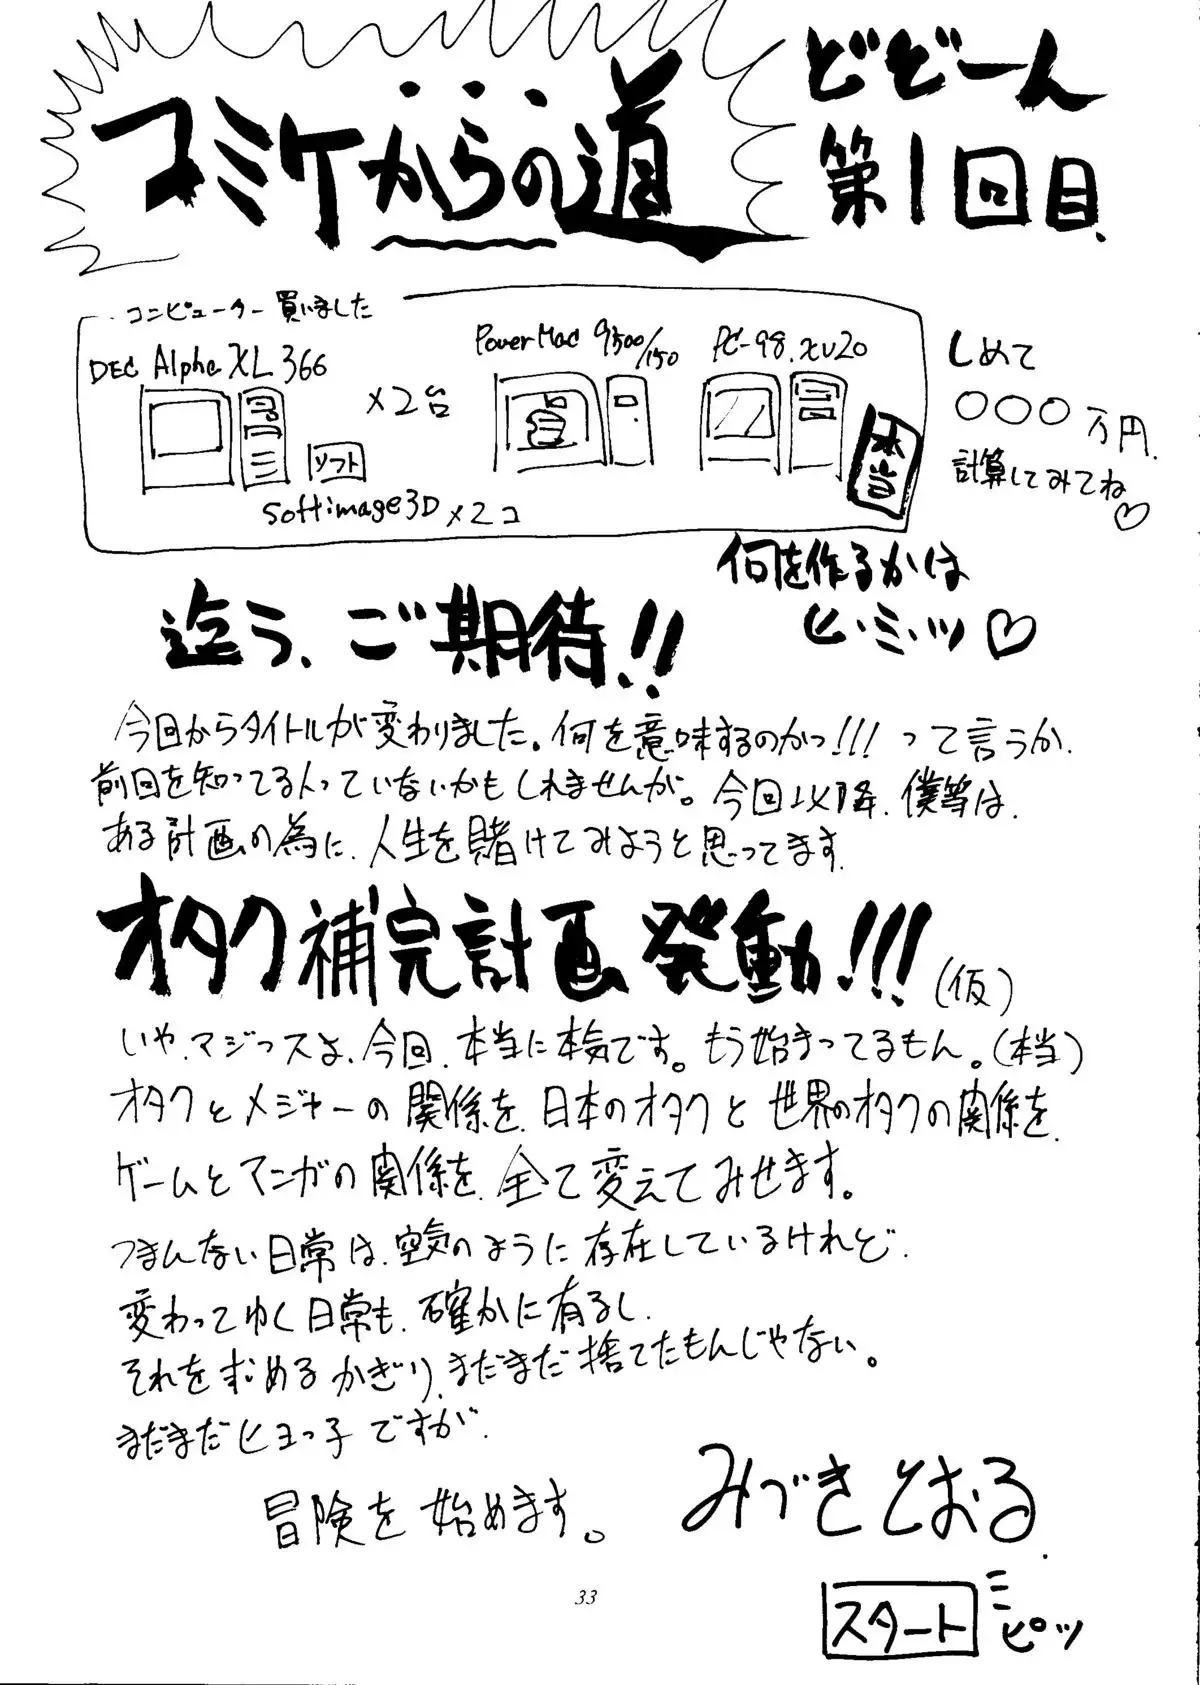 コミケからの道
どどーん
第1回目.
コンピューター買いました
DEC Alpha XL 366
×2台
ソフト
Softimage3D ×2コ
PowerMac 9500/150
PC-98.xv20
本当
しめて
○○○万円.
計算してみてね♡
何を作るかは
ヒ・ミ・ツ♡
迄う、ご期待!!
今回からタイトルが変わりました。何を意味するのかっ!!! って言うか、
前回を知ってる人っていないかもしれませんが。今回以降、僕等は、
ある計画の為に、人生を賭けてみようと思ってます.
オタク補完計画発動!!!(仮)
いや、マジっスよ、今回、本当に本気です。もう始まってるもん。(本当)
オタクとメジャーの関係を、日本のオタクと世界のオタクの関係を、
ゲームとマンガの関係を、全て変えてみせます。
つまんない日常は、空気のように存在しているけれど、
変わってゆく日常も、確かに有るし、
それを求めるかぎり、まだまだ捨てたもんじゃない。
まだまだヒヨっ子ですが、
冒険を始めます。
みづきとおる.
33
スタート
ピッ